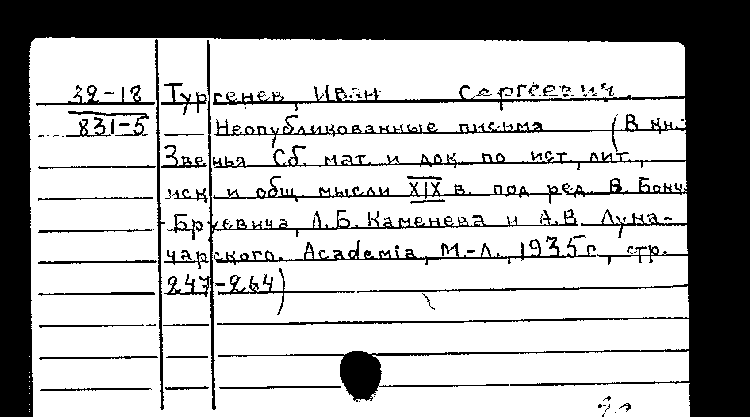 32-18 Тургенев, Иван Сергеевич.
831-5 Неопубликованные письма (В кн.:
Звенья Сб. мат. и док. по ист., лит.,
иск. и общ. мысли XIX в. под ред. В. Бонч-
-Бруевича, Л.Б. Каменева и А.В. Луна-
чарского. Academia, М.-Л., 1935г., стр.
247-264)